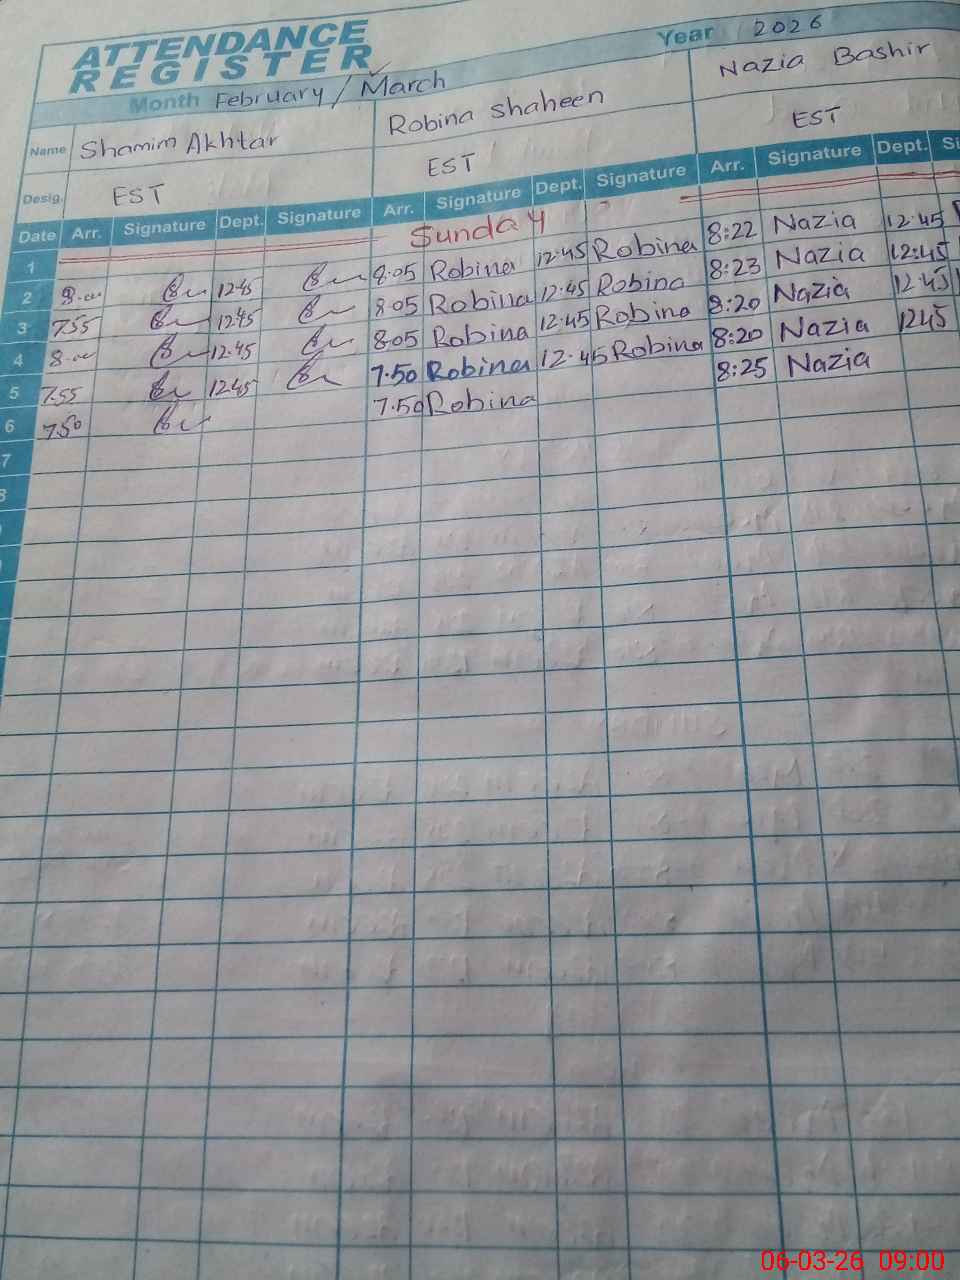 ATTENDANCE
REGISTER
Year 2026
Month February / March
Name Shamim Akhtar Robina Shaheen Nazia Bashir
Desig. EST EST EST
Date Arr. Signature Dept. Signature Arr. Signature Dept. Signature Arr. Signature Dept. Si
1 Sunday
2 8.00 12.45 8.05 Robina 12.45 Robina 8:22 Nazia 12.45
3 7.55 12.45 8.05 Robina 12.45 Robina 8:23 Nazia 12.45
4 8.00 12.45 8.05 Robina 12.45 Robina 8:20 Nazia 12.45
5 7.55 12.45 7.50 Robina 12.45 Robina 8:20 Nazia 12.45
6 7.50 7.50 Robina 8:25 Nazia
7
8
06-03-26 09:00